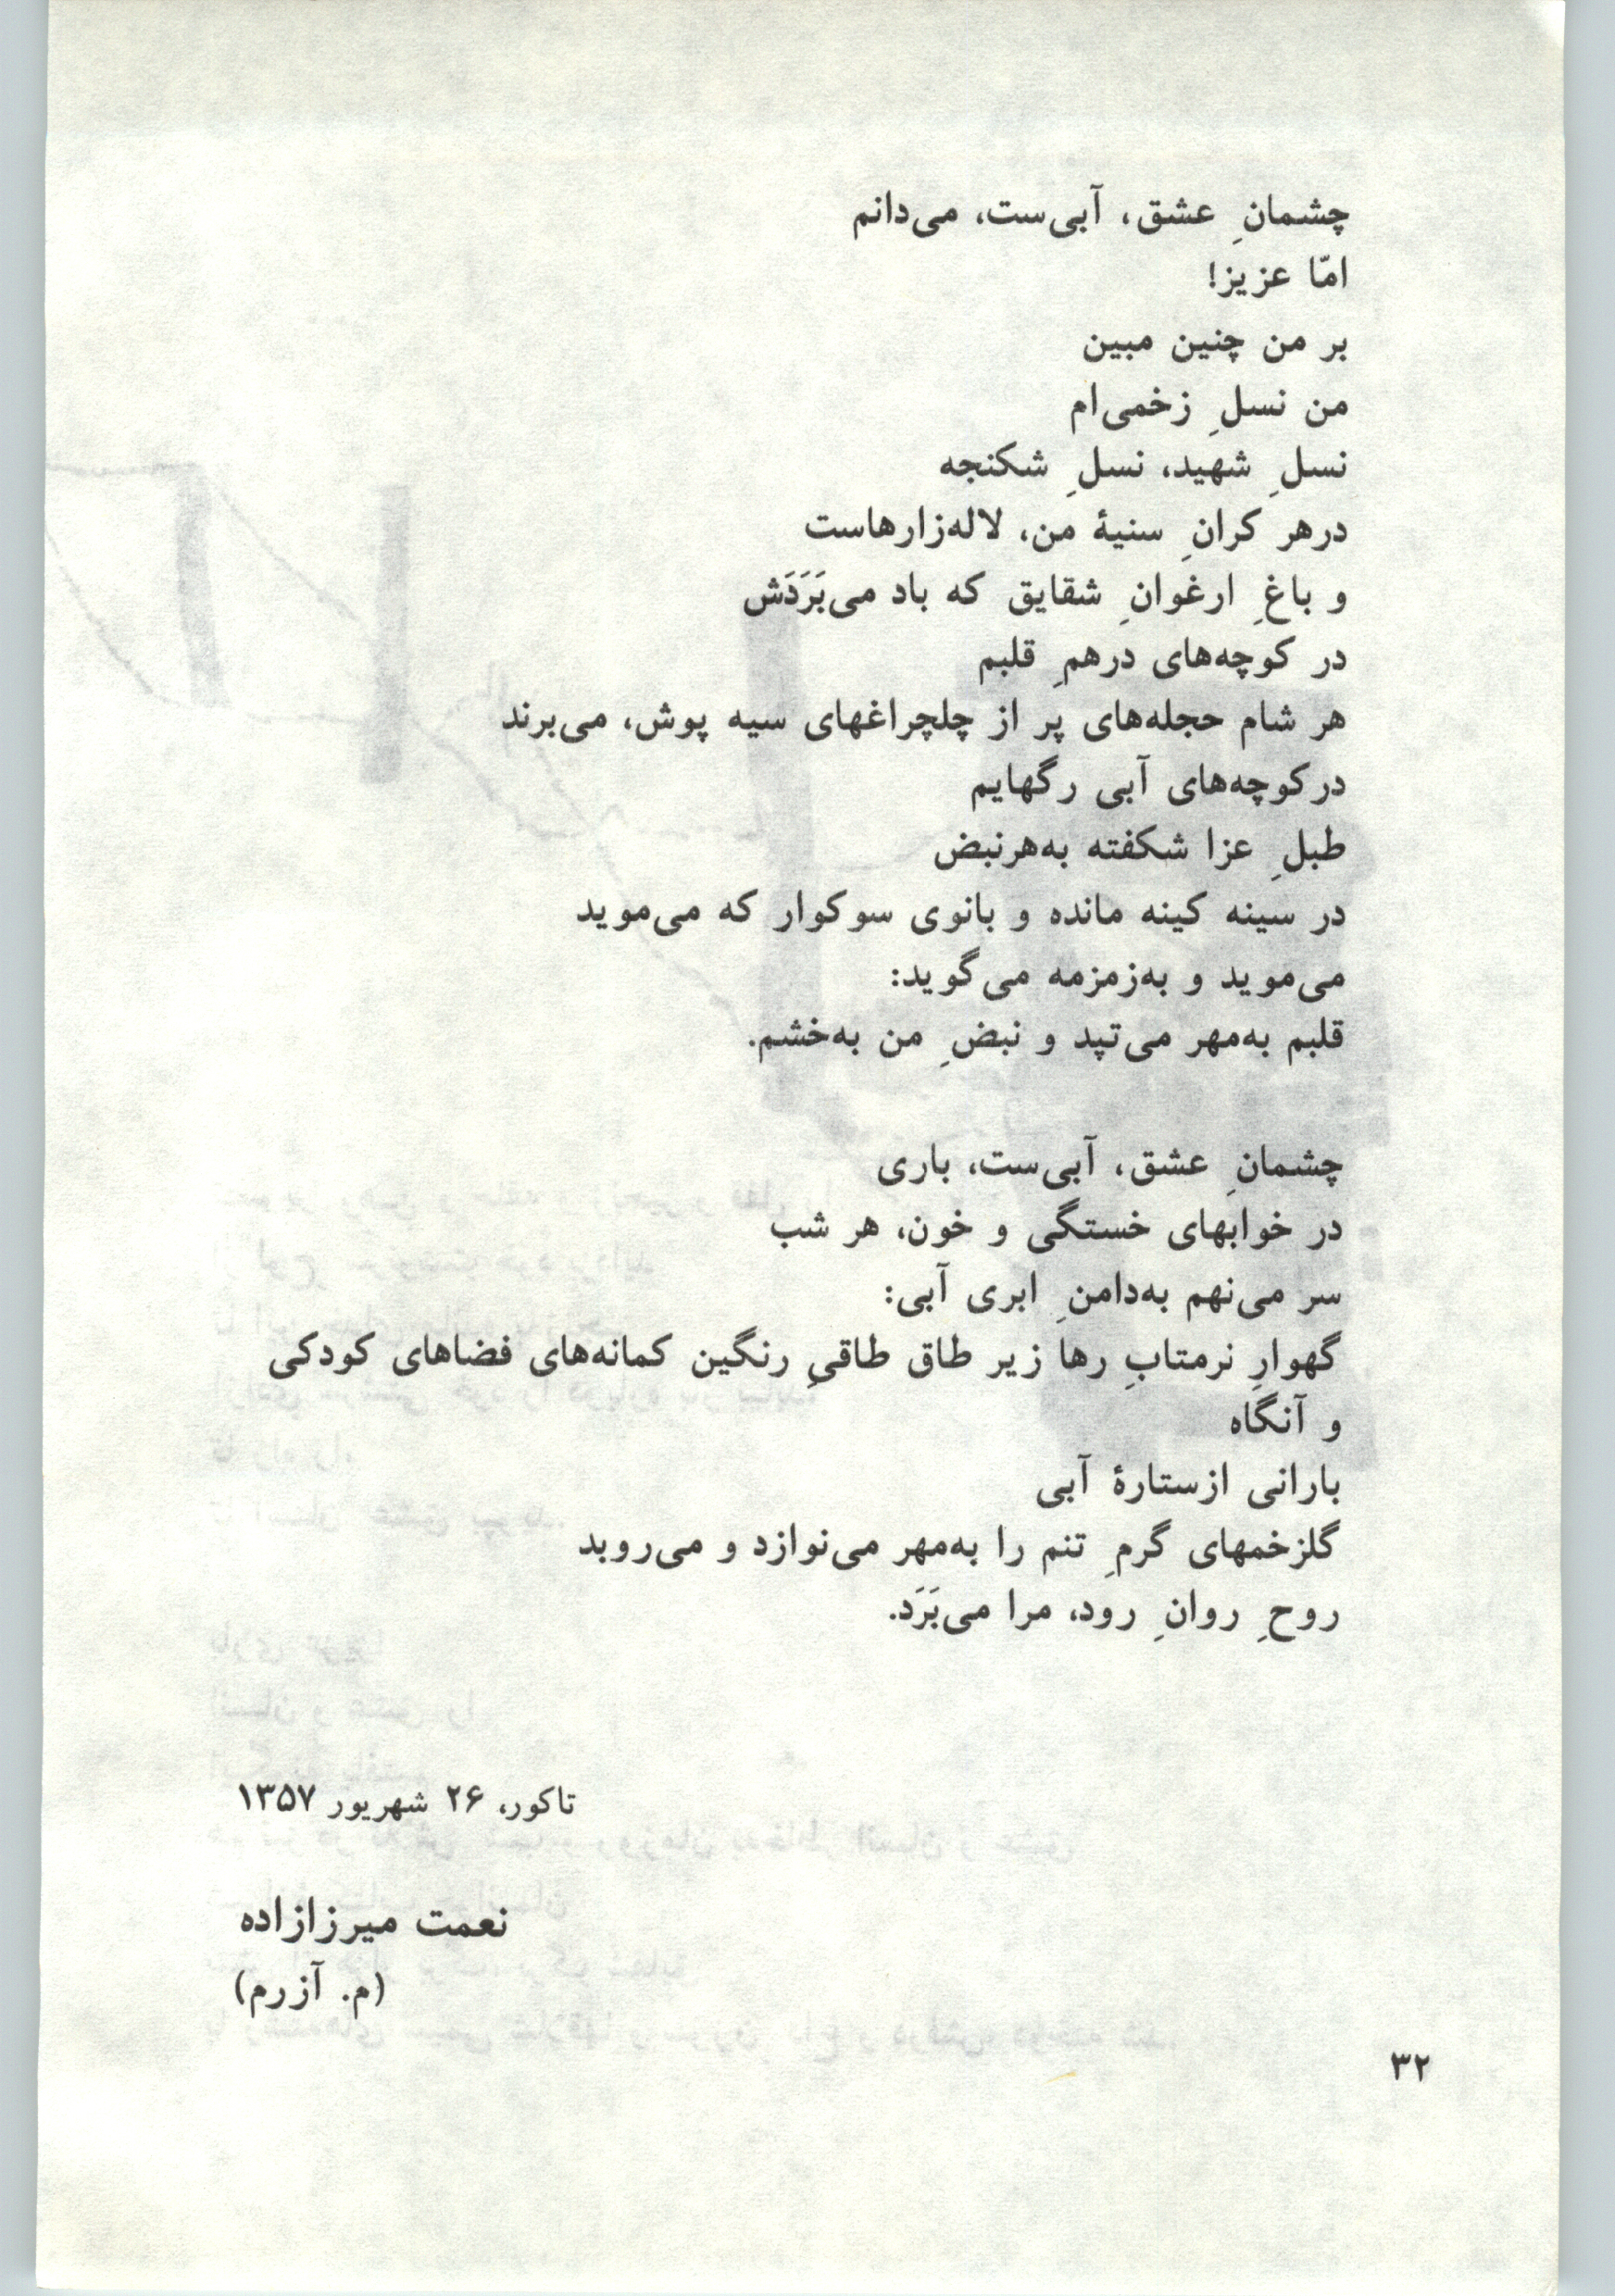 چشمانِ عشق، آبی‌ست، می‌دانم
امّا عزیز!
بر من چنین مبین
من نسلِ زخمی‌ام
نسلِ شهید، نسلِ شکنجه
درهر کرانِ سنیهٔ من، لاله‌زارهاست
و باغِ ارغوانِ شقایق که باد می‌بَرَدَش
در کوچه‌های درهمِ قلبم
هر شام حجله‌های پر از چلچراغهای سیه پوش، می‌برند
درکوچه‌های آبی رگهایم
طبلِ عزا شکفته به‌هرنبض
در سینه کینه مانده و بانوی سوکوار که می‌موید
می‌موید و به‌زمزمه می‌گوید:
قلبم به‌مهر می‌تپد و نبضِ من به‌خشم.
چشمانِ عشق، آبی‌ست، باری
در خوابهای خستگی و خون، هر شب
سر می‌نهم به‌دامنِ ابری آبی:
گهوارِ نرمتابِ رها زیر طاق طاقیِ رنگین کمانه‌های فضاهای کودکی
و آنگاه
بارانی ازستارهٔ آبی
گلزخمهای گرمِ تنم را به‌مهر می‌نوازد و می‌روبد
روحِ روانِ رود، مرا می‌بَرَد.
تاکور، ۲۶ شهریور ۱۳۵۷
نعمت میرزازاده
(م. آزرم)
۳۲